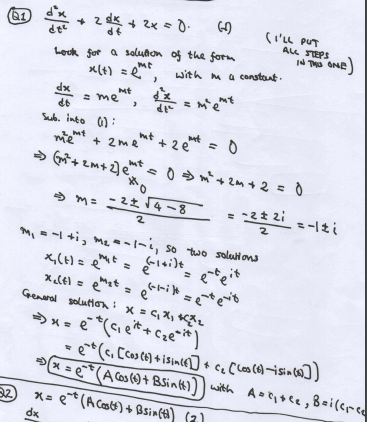 Q1 d²x/dt² + 2 dx/dt + 2x = 0. (1) (I'LL PUT ALL STEPS IN THIS ONE)
Look for a solution of the form
x(t) = e^{mt}, with m a constant.
dx/dt = me^{mt}, d²x/dt² = m²e^{mt}
Sub. into (1):
m²e^{mt} + 2me^{mt} + 2e^{mt} = 0
⇒ (m²+2m+2)e^{mt} = 0 ⇒ m² + 2m + 2 = 0
⇒ m = (-2 ± √(4-8))/2 = (-2 ± 2i)/2 = -1 ± i
m₁ = -1+i, m₂ = -1-i, so two solutions
x₁(t) = e^{m₁t} = e^{(-1+i)t} = e^{-t}e^{it}
x₂(t) = e^{m₂t} = e^{(-1-i)t} = e^{-t}e^{-it}
General solution: x = c₁x₁ + c₂x₂
⇒ x = e^{-t}(c₁e^{it} + c₂e^{-it})
= e^{-t}(c₁[cos(t)+isin(t)] + c₂[cos(t)-isin(t)])
⇒ x = e^{-t}(Acos(t) + Bsin(t)) with A = c₁+c₂, B = i(c₁-c₂
Q2 x = e^{-t}(Acos(t) + Bsin(t)) (2)
dx